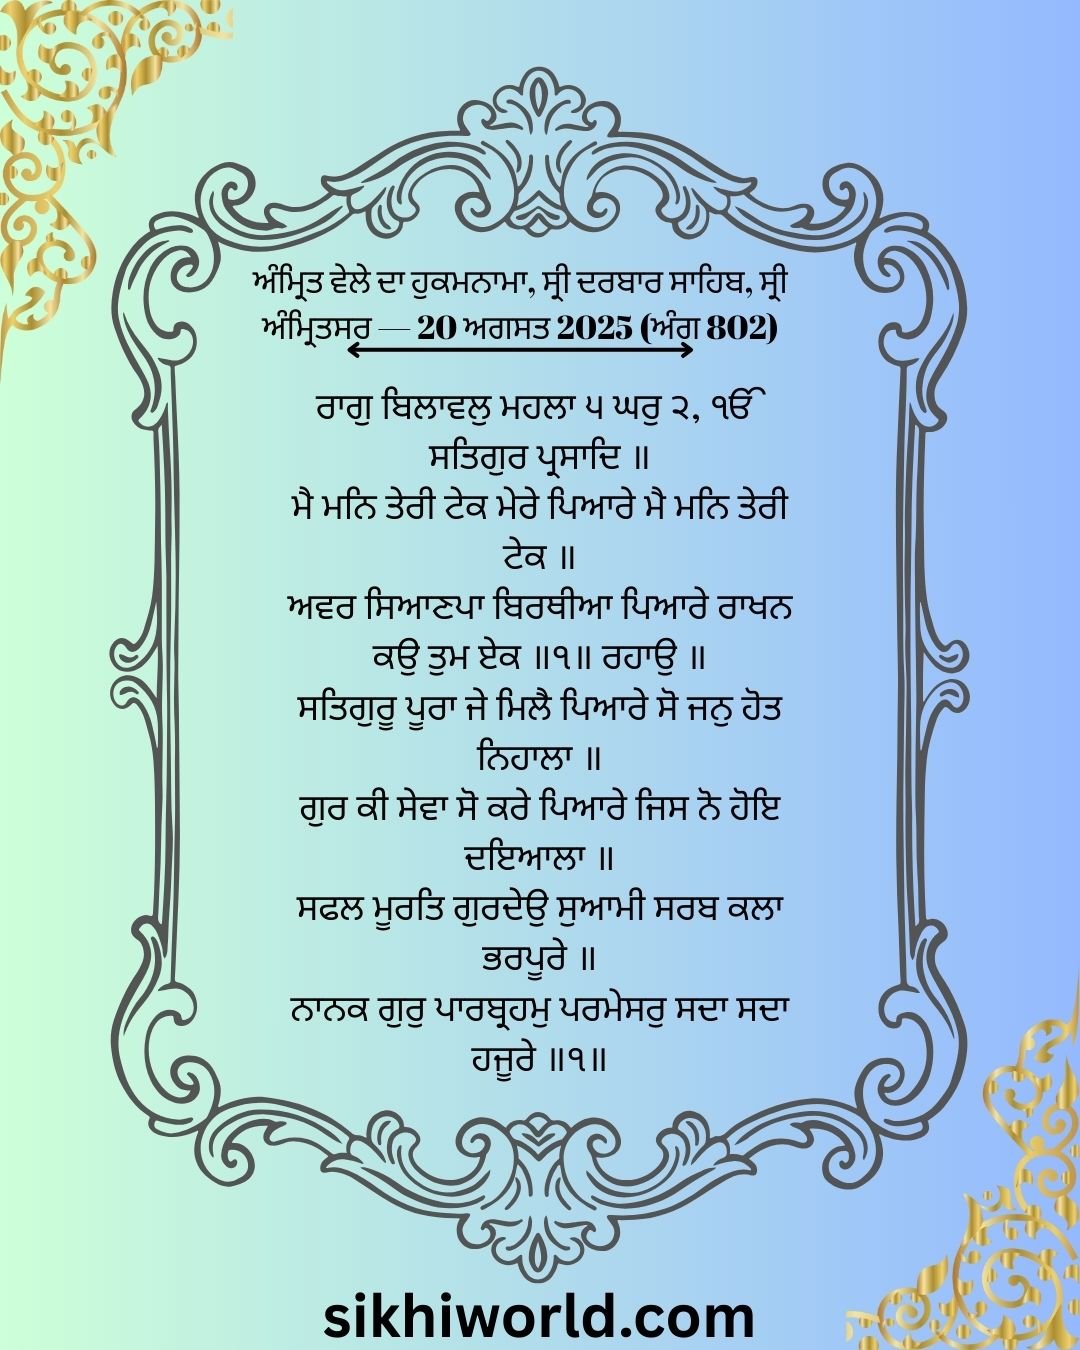 ਅੰਮ੍ਰਿਤ ਵੇਲੇ ਦਾ ਹੁਕਮਨਾਮਾ, ਸ੍ਰੀ ਦਰਬਾਰ ਸਾਹਿਬ, ਸ੍ਰੀ
ਅੰਮ੍ਰਿਤਸਰ — 20 ਅਗਸਤ 2025 (ਅੰਗ 802)
ਰਾਗੁ ਬਿਲਾਵਲੁ ਮਹਲਾ ੫ ਘਰੁ ੨, ੴ
ਸਤਿਗੁਰ ਪ੍ਰਸਾਦਿ ॥
ਮੈ ਮਨਿ ਤੇਰੀ ਟੇਕ ਮੇਰੇ ਪਿਆਰੇ ਮੈ ਮਨਿ ਤੇਰੀ
ਟੇਕ ॥
ਅਵਰ ਸਿਆਣਪਾ ਬਿਰਥੀਆ ਪਿਆਰੇ ਰਾਖਨ
ਕਉ ਤੁਮ ਏਕ ॥੧॥ ਰਹਾਉ ॥
ਸਤਿਗੁਰੂ ਪੂਰਾ ਜੇ ਮਿਲੈ ਪਿਆਰੇ ਸੋ ਜਨੁ ਹੋਤ
ਨਿਹਾਲਾ ॥
ਗੁਰ ਕੀ ਸੇਵਾ ਸੋ ਕਰੇ ਪਿਆਰੇ ਜਿਸ ਨੋ ਹੋਇ
ਦਇਆਲਾ ॥
ਸਫਲ ਮੂਰਤਿ ਗੁਰਦੇਉ ਸੁਆਮੀ ਸਰਬ ਕਲਾ
ਭਰਪੂਰੇ ॥
ਨਾਨਕ ਗੁਰੁ ਪਾਰਬ੍ਰਹਮੁ ਪਰਮੇਸਰੁ ਸਦਾ ਸਦਾ
ਹਜੂਰੇ ॥੧॥
sikhiworld.com